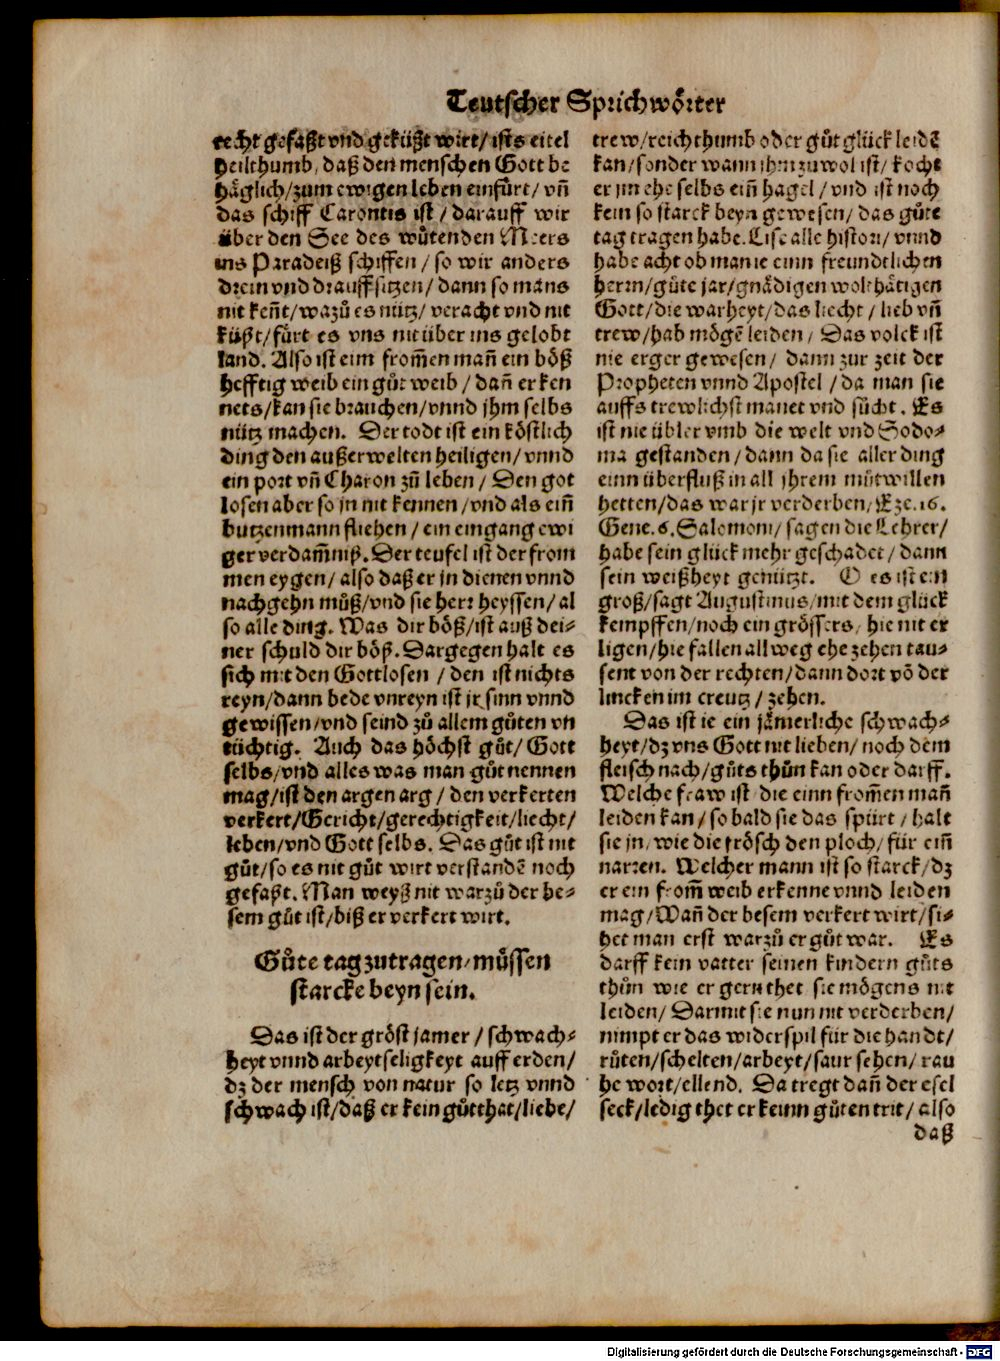 Teutscher Sprichwoͤrter
recht gefaßt vnd gekuͤßt wirt/ ists eitel
heilthumb/ daß den menschen Gott be
haͤglich/ zum ewigen leben einfuͤrt/ vñ
das schiff Carontis ist/ darauff wir
uͤber den See des wuͤtenden Meers
ins Paradeiß schiffen/ so wir anders
drein vnd drauff sitzen/ dann so mans
nit keñt/ wazuͦ es nuͤtz/ veracht vnd nit
kuͤßt/ fuͤrt es vns nit uͤber ins gelobt
land. Also ist eim from̃en mañ ein boͤß
hefftig weib ein guͦt weib/ dañ er ken
nets/ kan sie brauchen/ vnnd jhm selbs
nuͤtz machen. Der todt ist ein koͤstlich
ding den außerwelten heiligen/ vnnd
ein port vñ Charon zuͦ leben/ Den got
losen aber so jn nit kennen/ vnd als eiñ
butzenmann fliehen/ ein eingang ewi
ger verdam̃niß. Der teufel ist der from
men eygen/ also daß er jn dienen vnnd
nachgehn muͦß/ vnd sie herr heyssen/ al
so alle ding. Was dir boͤß/ ist auß dei⸗
ner schuld dir boͤß. Dargegen halt es
sich mit den Gottlosen/ den ist nichts
reyn/ dann bede vnreyn ist jr sinn vnnd
gewissen/ vnd seind zuͦ allem guͦten vn
tuͤchtig. Auch das hoͤchst guͦt/ Gott
selbs/ vnd alles was man guͦt nennen
mag/ ist den argen arg/ den verkerten
verkert/ Gericht/ gerechtigkeit/ liecht/
leben/ vnd Gott selbs. Das guͦt ist nit
guͦt/ so es nit guͦt wirt verstandẽ noch
gefaßt. Man weyß nit warzuͦ der be⸗
sem guͦt ist/ biß er verkert wirt.
Guͦte tag zutragen/ muͤssen
starcke beyn sein.
Das ist der groͤst jamer/ schwach⸗
heyt vnnd arbeytseligkeyt auff erden/
dz der mensch von natur so letz vnnd
schwach ist/ daß er kein guͦtthat/ liebe/
trew/ reichthumb oder guͦt gluͤck leidẽ
kan/ sonder wann jhm zu wol ist/ kocht
er jm ehe selbs eiñ hagel/ vnd ist noch
kein so starck beyn gewesen/ das guͦte
tag tragen habe. Lise alle histori/ vnnd
habe acht ob man ie einn freundtlichen
herrn/ guͦte jar/ gnaͤdigen wolthaͤtigen
Gott/ die warheyt/ das liecht/ lieb vñ
trew/ hab moͤgẽ leiden/ Das volck ist
nie erger gewesen/ dann zur zeit der
Propheten vnnd Apostel/ da man sie
auffs trewlichst manet vnd suͦcht. Es
ist nie uͤbler vmb die welt vnd Sodo⸗
ma gestanden/ dann da sie aller ding
einn uͤberfluß in all jhrem muͦtwillen
hetten/ das war jr verderben/ Eze. 16.
Gene. 6. Salomoni/ sagen die Lehrer/
habe sein gluͤck mehr geschadet/ dann
sein weißheyt genuͤtzt. O es ist ein
groß/ sagt Augustinus/ mit dem gluͤck
kempffen/ noch ein groͤssers/ hie nit er
ligen/ hie fallen allweg ehe zehen tau⸗
sent von der rechten/ dann dort võ der
lincken im creutz/ zehen.
Das ist ie ein jaͤmerliche schwach⸗
heyt/ dz vns Gott nit lieben/ noch dem
fleisch nach/ guͦts thuͦn kan oder darff.
Welche fraw ist die einn from̃en mañ
leiden kan/ so bald sie das spuͤrt/ halt
sie jn/ wie die froͤsch den ploch/ fuͤr eiñ
narren. Welcher mann ist so starck/ dz
er ein from̃ weib erkenne vnnd leiden
mag/ Wañ der besem verkert wirt/ si⸗
het man erst warzuͦ er guͦt war. Es
darff kein vatter seinen kindern guͦts
thuͦn wie er gern thet sie moͤgens nit
leiden/ Darmit sie nun nit verderben/
nimpt er das widerspil fuͤr die handt/
ruͦten/ schelten/ arbeyt/ saur sehen/ rau
he wort/ ellend. Da tregt dañ der esel
seck/ ledig thet er keinn guͦten trit/ also
daß
Digitalisierung gefördert durch die Deutsche Forschungsgemeinschaft - DFG